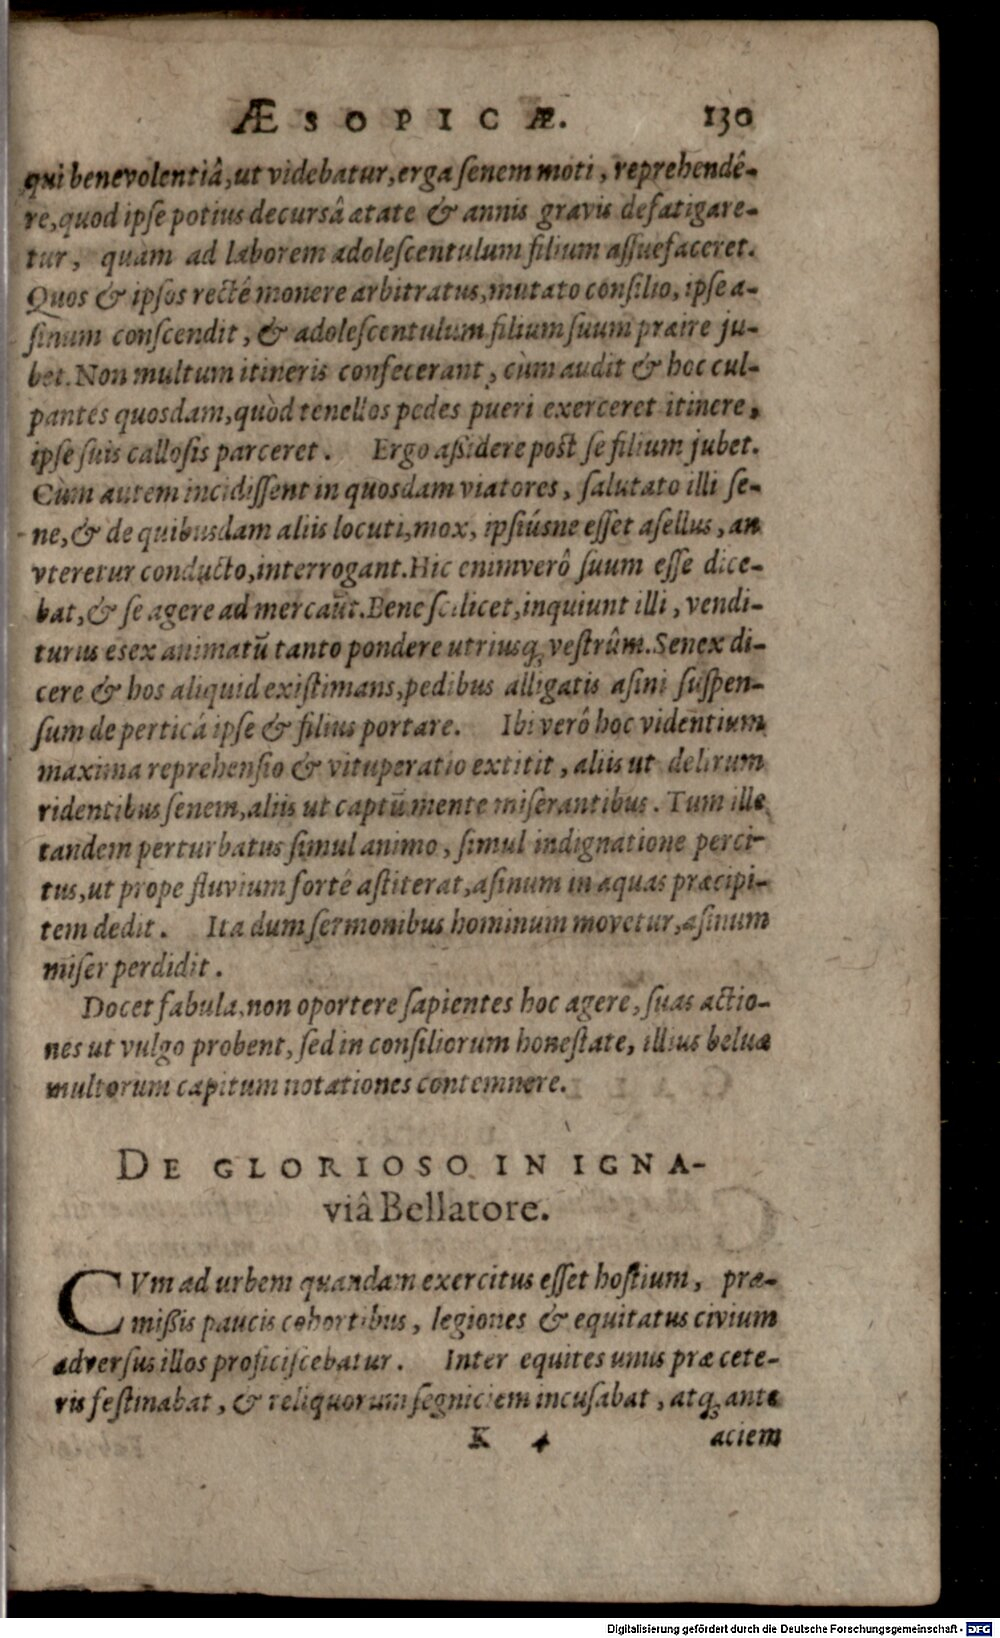 ÆSOPICÆ. 130
qui benevolentiâ, ut videbatur, erga senem moti, reprehendê-
re, quod ipse potius decursâ ætate & annis gravis defatigare-
tur, quàm ad laborem adolescentulum filium assuefaceret.
Quos & ipsos rectè monere arbitratus, mutato consilio, ipse a-
sinum conscendit, & adolescentulum filium suum præire ju-
bet. Non multum itineris confecerant, cùm audit & hoc cul-
pantes quosdam, quòd tenellos pedes pueri exerceret itinere,
ipse suis callosis parceret. Ergo aßidere post se filium jubet.
Cùm autem incidissent in quosdam viatores, salutato illi se-
ne, & de quibusdam aliis locuti, mox, ipsiúsne esset asellus, an
vteretur conducto, interrogant. Hic enimverô suum esse dice-
bat, & se agere ad mercatũ. Bene scilicet, inquiunt illi, vendi-
turus es exanimatũ tanto pondere utriusq; vestrûm. Senex di-
cere & hos aliquid existimans, pedibus alligatis asini suspen-
sum de perticâ ipse & filius portare. Ibi verô hoc videntium
maxima reprehensio & vituperatio extitit, aliis ut delirum
ridentibus senem, aliis ut captũ mente miserantibus. Tum ille
tandem perturbatus simul animo, simul indignatione perci-
tus, ut prope fluvium fortè astiterat, asinum in aquas præcipi-
tem dedit. Ita dum sermonibus hominum movetur, asinum
miser perdidit.
Docet fabula, non oportere sapientes hoc agere, suas actio-
nes ut vulgo probent, sed in consiliorum honestate, illius beluæ
multorum capitum notationes contemnere.
DE GLORIOSO IN IGNA-
viâ Bellatore.
CVm ad urbem quandam exercitus esset hostium, præ-
mißis paucis cohortibus, legiones & equitatus civium
adversus illos proficiscebatur. Inter equites unus præ cete-
ris festinabat, & reliquorum segniciem incusabat, atq; ante
K 4 aciem
Digitalisierung gefördert durch die Deutsche Forschungsgemeinschaft - DFG